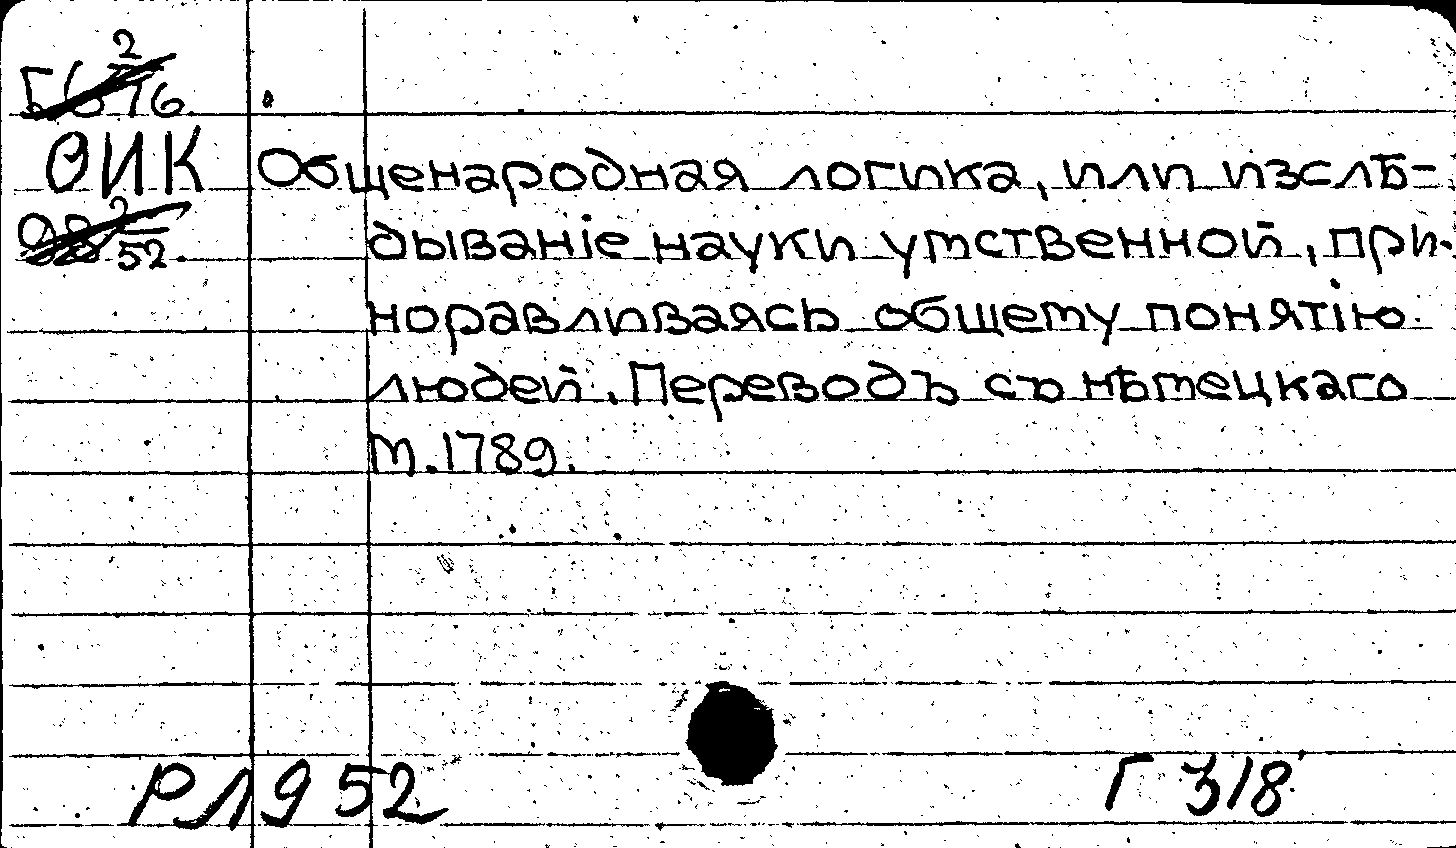 ОИК
Общенародная логика, или изслѣ-
дываніе науки умственной, при-
норавливаясь общему понятію
людей. Переводъ съ нѣмецкаго
М. 1789.
РЛ 952
Г 318